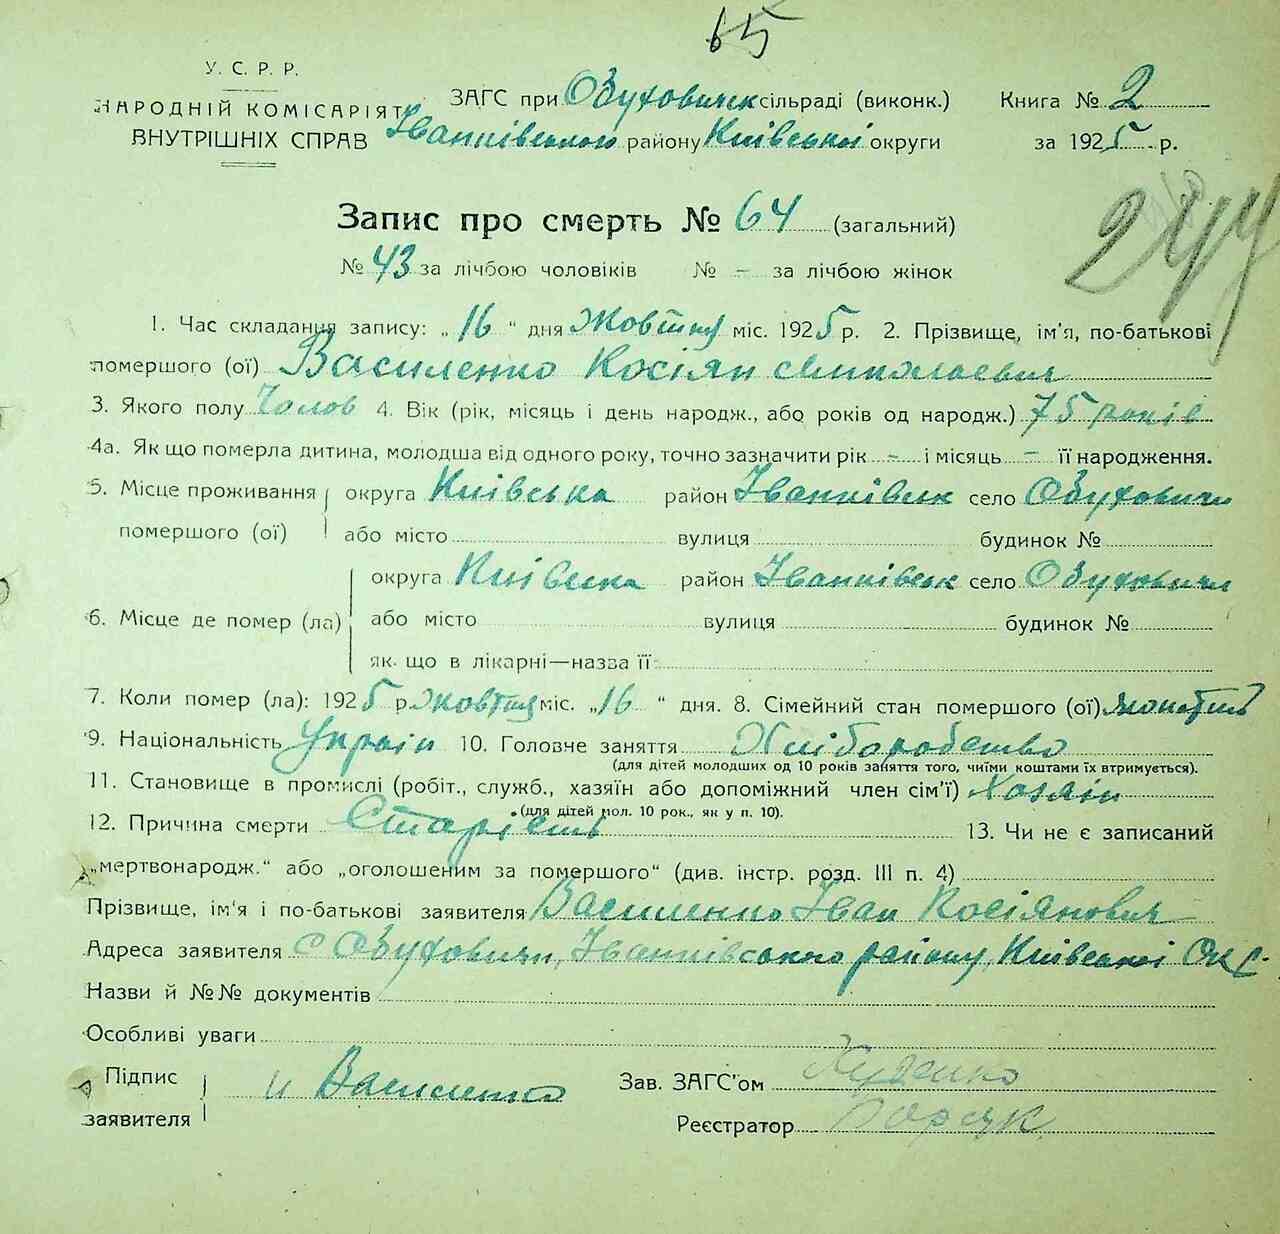 65
У. С. Р. Р.
НАРОДНІЙ КОМІСАРІЯТ
ВНУТРІШНІХ СПРАВ
ЗАГС при Обуховичск сільраді (виконк.)
Іванківського району Київської округи
Книга № 2
за 1925 р.
Запис про смерть № 64 (загальний)
№ 43 за лічбою чоловіків № – за лічбою жінок
1. Час складання запису: „ 16 “ дня Жовтня міс. 1925 р. 2. Прізвище, ім'я, по-батькові
помершого (ої) Василенко Косіян Миколаевич
3. Якого полу Чолов 4. Вік (рік, місяць і день народж., або років од народж.) 75 років
4а. Як що померла дитина, молодша від одного року, точно зазначити рік – і місяць – її народження.
5. Місце проживання помершого (ої) округа Київська район Іванківськ село Обуховичи
або місто вулиця будинок №
6. Місце де помер (ла) округа Київська район Іванківськ село Обуховичи
або місто вулиця будинок №
як що в лікарні—назва її
7. Коли помер (ла): 1925 р. жовтня міс. „16 “ дня. 8. Сімейний стан помершого (ої)
9. Національність Україн 10. Головне заняття Хліборобство
(для дітей молодших од 10 років заняття того, чиїми коштами їх втримується).
11. Становище в промислі (робіт., служб., хазяїн або допоміжний член сім'ї) Хозяін
(для дітей мол. 10 рок., як у п. 10).
12. Причина смерти Старість 13. Чи не є записаний
„мертвонародж.“ або „оголошеним за помершого“ (див. інстр. розд. III п. 4)
Прізвище, ім'я і по-батькові заявителя Василенко Іван Косіянович
Адреса заявителя с Обуховичи, Іванківського району, Київської Окр.
Назви й №№ документів
Особливі уваги
Підпис заявителя и Василенко
Зав. ЗАГС'ом
Реєстратор Борсук